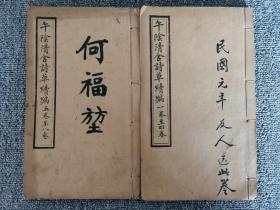 午陰清舍詩草續編一卷至四卷
民國元年 友人送此卷
午陰清舍詩草續編五卷至八卷
何福堃